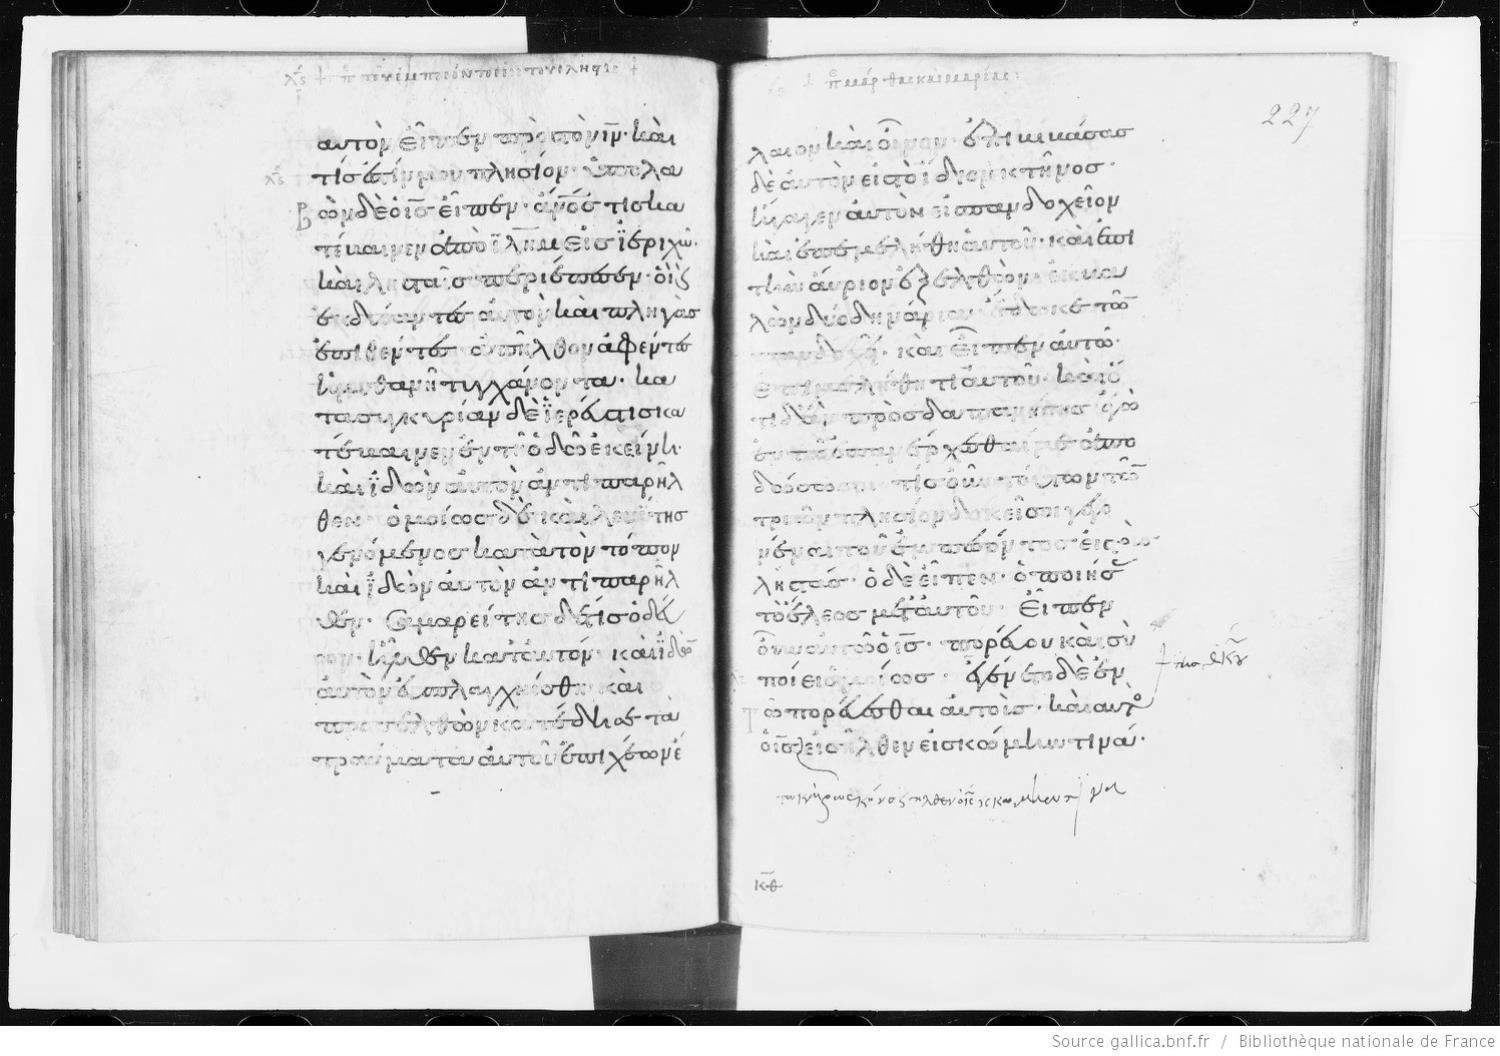 αυτὸν εἶπεν πρὸς τὸν ιν̄· καὶ
τίς ἐστίν μου πλησίον· ὑπολα
βὼν δὲ ὁ ις̄ εἶπεν· ἄνο̄ς τις κα
τέβαινεν ἀπὸ ϊλη̄μ εἰς ϊεριχώ·
καὶ λησταῖς περιέπεσεν· οἳ
ἐκδύσαντες αὐτὸν καὶ πληγὰς
ἐπιθέντες ἀπῆλθον ἀφέντες
ἡμιθανῆ τυγχάνοντα· κα
τασυγκυρίαν δὲ ϊερεύς τις κα
τέβαινεν ἐν τῆ ὁδῶ ἐκείνη·
καὶ ϊδὼν αὐτὸν ἀντιπαρῆλ
θεν· ὁμοίως δὲ καὶ λευΐτης
γενόμενος κατὰ τὸν τόπον
καὶ ϊδὼν αὐτὸν ἀντιπαρῆλ
θεν· Σαμαρείτης δέ τις ὁδεύ
ων· ἦλθεν κατ' αὐτόν· καὶ ϊδὼν
αὐτὸν ἐσπλαγχνίσθη· καὶ
προσελθὼν κατέδησε τὰ
τραύματα αὐτοῦ ἐπιχέων ἔ
π μάρθας και μαρίας:
227
λαιον καὶ οἶνον· ἐπιβιβάσας
δὲ αὐτὸν εἰς τὸ ἴδιον κτῆνος·
ἤγαγεν αὐτὸν εἰς πανδοχεῖον
καὶ ἐπεμελήθη αὐτοῦ· καὶ ἐπὶ
τὴν αὔριον ἐξελθὼν ἐκβα
λὼν δύο δηνάρια ἔδωκε τῶ
πανδοχεῖ· καὶ εἶπεν αὐτῶ·
Ἐπιμελήθητι αὐτοῦ· καὶ ὅ
τι ἐὰν προσδαπανήσης ἐγὼ
ἐν τῶ ἐπανέρχεσθαί με ἀπο
δώσω σοι· τίς οὖν τούτων τῶν
τριῶν πλησίον δοκεῖ σοι γεγο
νέναι τοῦ ἐμπεσόντος εἰς τοὺς
λῃστάς· ὁ δὲ εἶπεν· ὁ ποιήσας
τὸ ἔλεος μετ' αὐτοῦ· Εἶπεν
οὖν αὐτῶ ὁ ις̄· πορεύου καὶ σὺ
ποίει ὁμοίως· ἐγένετο δὲ ἐν
τῶ πορεύεσθαι αὐτοὺς· καὶ αὐτὸς
ὁ ις̄ εἰσῆλθεν εἰς κώμην τινά·
τω καιρω εκεινω εισηλθεν ο ις̄ εις κωμην τινα
κθ
Source gallica.bnf.fr / Bibliothèque nationale de France